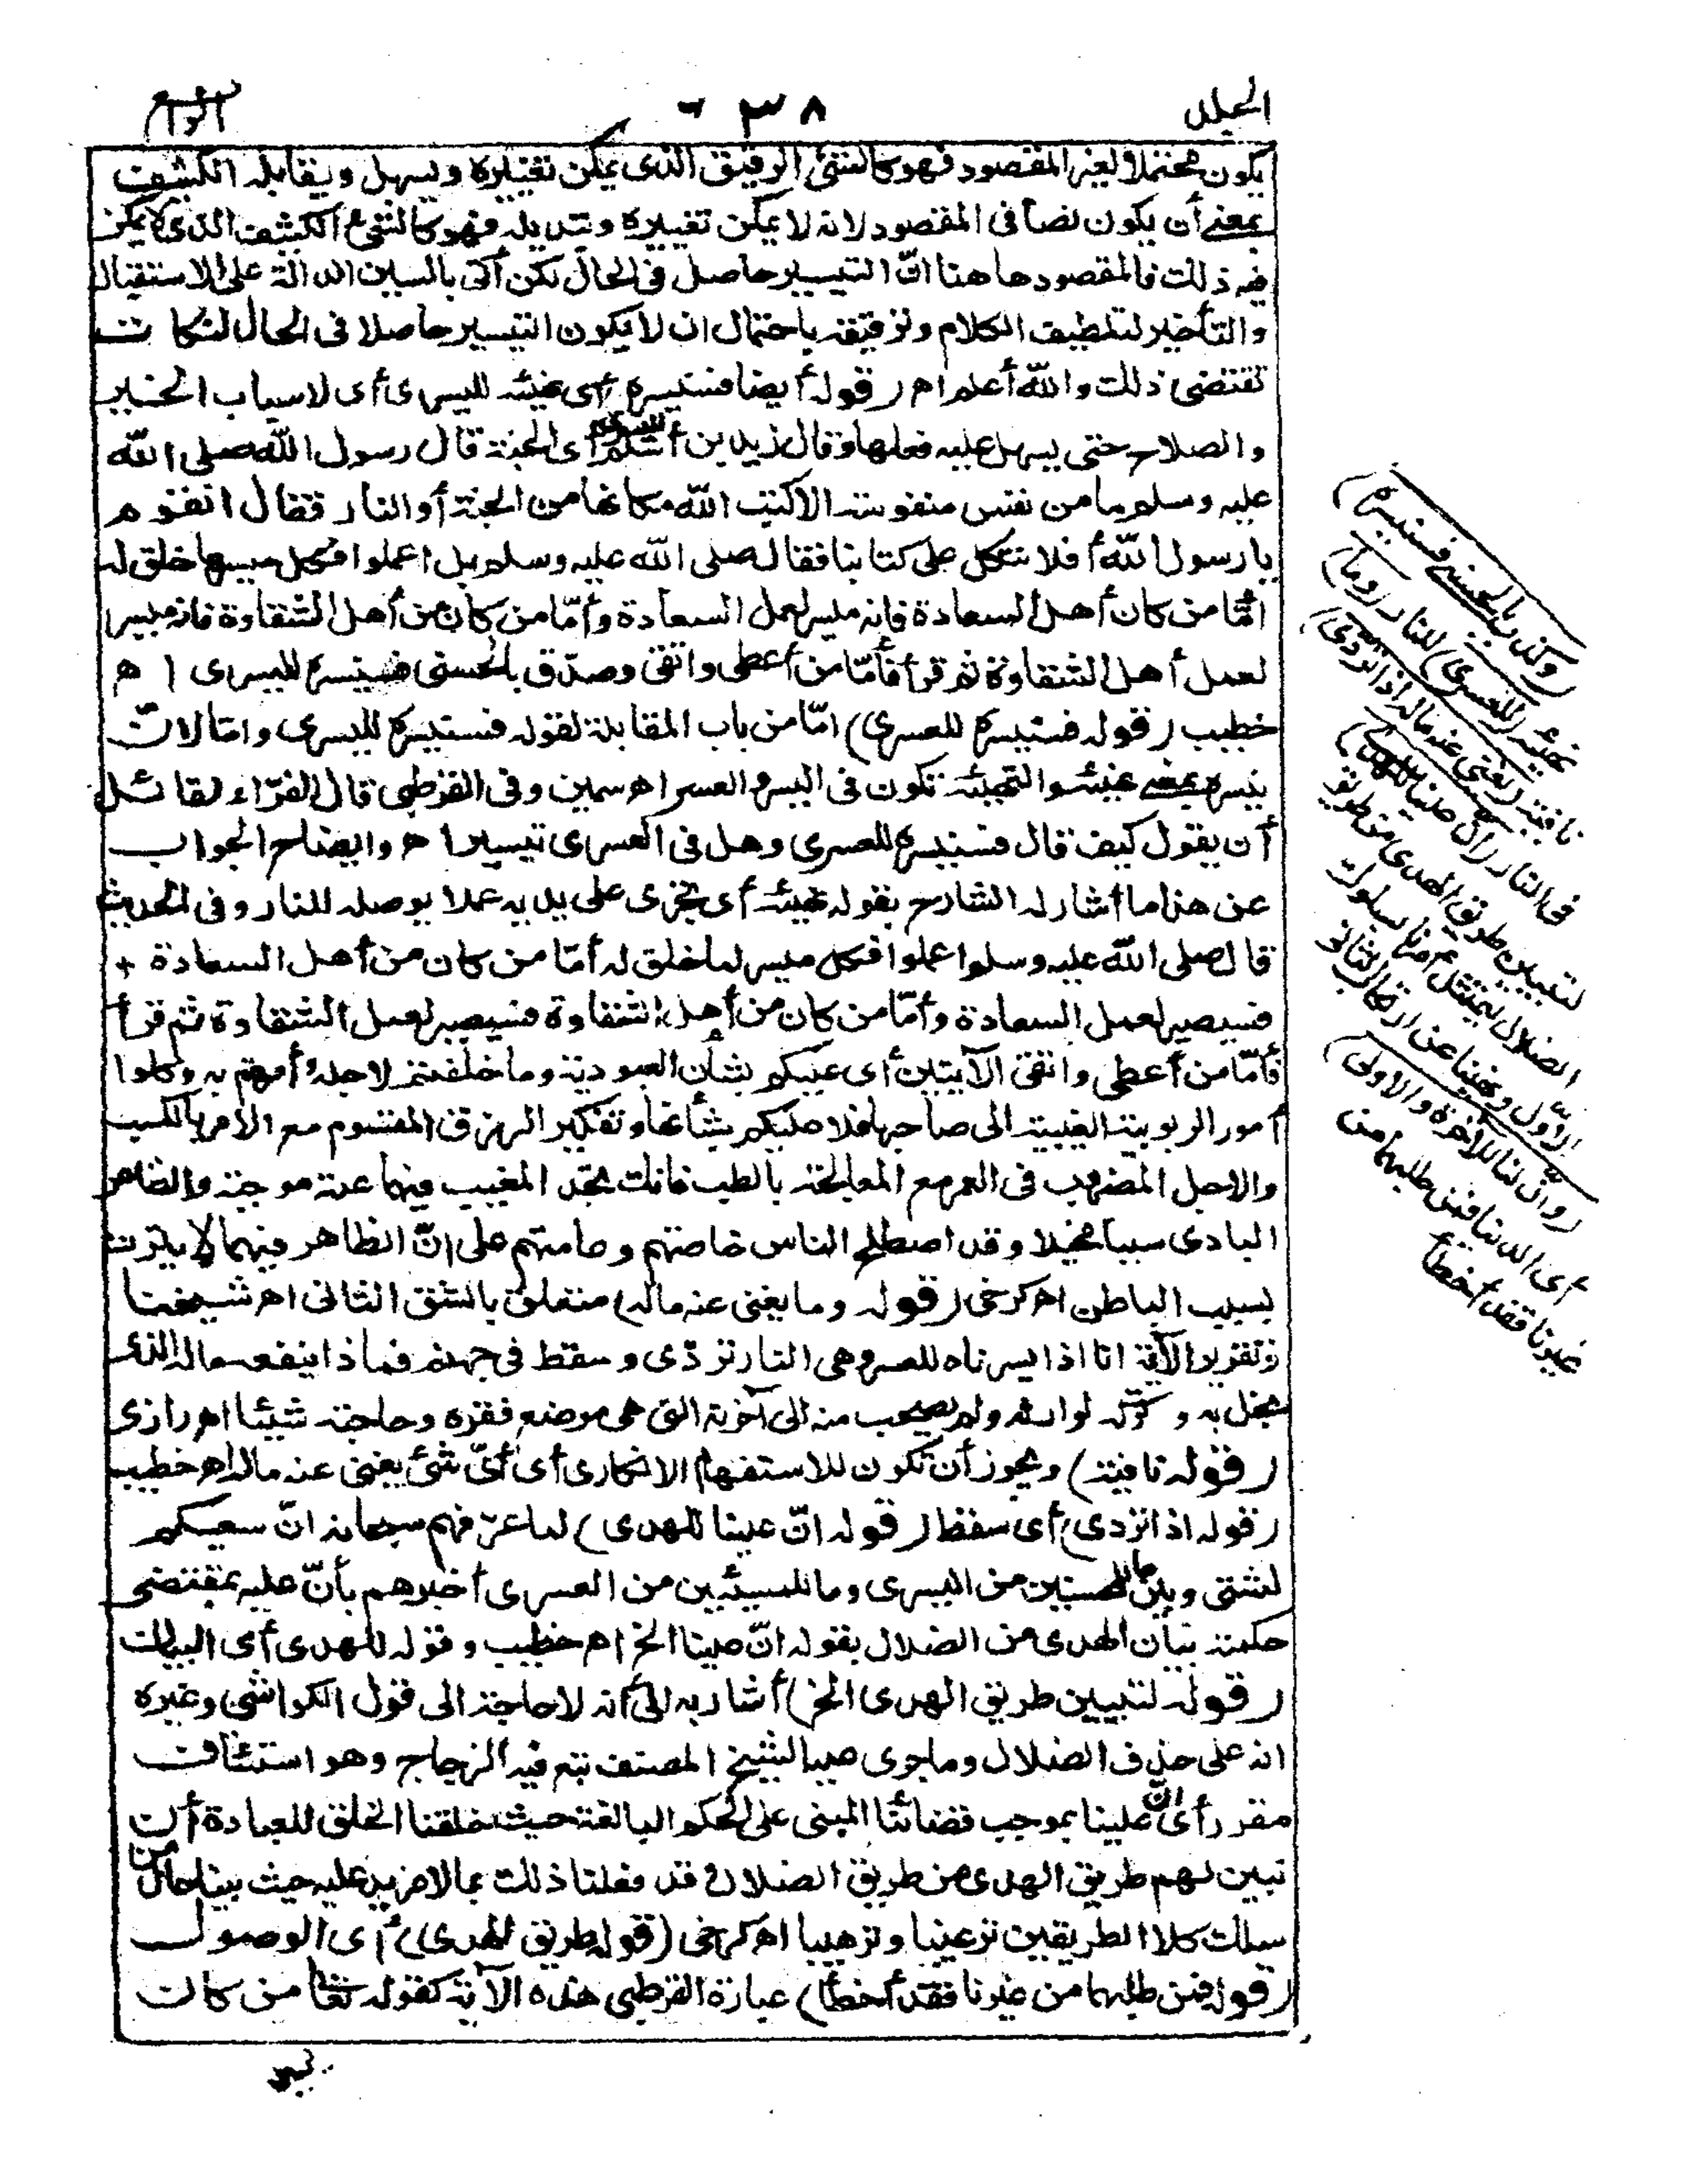 الجلد
٣٨٠
الرابع
يكون محتملا لغير المقصود فهو كالشئ الرقيق الذى يمكن تغييره ويسهل ويقابله الكشف
بمعنى أن يكون نصا فى المقصود لانه لا يمكن تغييره وتبديله فهو كالشئ الكثيف الذى لا يمكن
فيه ذلك فالمقصود ها هنا انّ التيسير حاصل فى الحال لكن أتى بالسين الدالة على الاستقبال
والتأخير لتلطيف الكلام وترقيقه باحتمال ان لا يكون التيسير حاصلا فى الحال لنكات
تقتضى ذلك والله أعلم اهـ (قوله أيضا فسنيسره) أى نهيئه لليسرى أى لاسباب الخير
والصلاح حتى يسهل عليه فعلها وقال زيد بن أسلم لليسرى أى الجنة قال رسول الله صلى الله
عليه وسلم ما من نفس منفوسة الا كتب الله مكانها من الجنة أو النار فقال القوم
يا رسول الله أفلا نتكل على كتابنا فقال صلى الله عليه وسلم بل اعملوا فكل ميسر لما خلق له
أمّا من كان أهل السعادة فانه ميسر لعمل السعادة وأمّا من كان من أهل الشقاوة فانه ميسر
لعمل أهل الشقاوة ثم قرأ فأمّا من أعطى واتقى وصدّق بالحسنى فسنيسره لليسرى اهـ
خطيب (قوله فسنيسره للعسرى) امّا من باب المقابلة لقوله فسنيسره لليسرى وامّا لانّ
نيسره بمعنى نهيئه والتهيئة تكون فى اليسر والعسر اهـ سمين وفى القرطبى قال الفرّاء لقائل
أن يقول كيف قال فسنيسره للعسرى وهل فى العسرى تيسير اهـ وايضاح الجواب
عن هذا ما أشار له الشارح بقوله نهيئه أى نجرى على يديه عملا يوصله للنار وفى الحديث
قال صلى الله عليه وسلم اعملوا فكل ميسر لما خلق له أمّا من كان من أهل السعادة +
فسيصير لعمل السعادة وأمّا من كان من أهل الشقاوة فسيصير لعمل الشقاوة ثم قرأ
فأمّا من أعطى واتقى الآيتين أى عليكم بشأن العبودية وما خلقتم لاجله وأمرتم به وكلوا
أمور الربوبية الغيبية الى صاحبها فلا عليكم بشأنها وتفكير الرزق المقسوم مع الأمر بالكسب
والاجل المضروب فى العمر مع المعالجة بالطب فانك تجد المغيب فيهما علة موجبة والظاهر
البادى سببا مخيلا وقد اصطلح الناس خاصتهم وعامتهم على انّ الظاهر فيهما لا يترك
بسبب الباطن اهـ كرخى (قوله وما يغنى عنه ماله) متعلق بالشق الثانى اهـ شيخنا
وتقرير الآية انا اذا يسرناه للعسرى وهى النار تردّى وسقط فى جهنم فماذا ينفعه ماله الذى
بخل به وتركه لوارثه ولم يصحب منه الى آخرته التى هى موضع فقره وحاجته شيئا اهـ رازى
(قوله نافية) ويجوز أن تكون للاستفهام الانكارى أى أىّ شئ يغنى عنه ماله اهـ خطيب
(قوله اذا تردى) أى سقط (قوله انّ علينا للهدى) لما عرّفهم سبحانه انّ سعيكم
لشتى وبين ما للمحسنين من اليسرى وما للمسيئين من العسرى أخبرهم بأنّ عليه بمقتضى
حكمته بيان الهدى من الضلال بقوله انّ علينا الخ اهـ خطيب وقوله للهدى أى البيان
(قوله لتبيين طريق الهدى الخ) أشار به الى أنه لا حاجة الى قول الكواشى وغيره
انه على حذف الضلال وما جرى عليه الشيخ المصنف تبع فيه الزجاج وهو استئناف
مقرر أى انّ علينا بموجب قضائنا المبنى على الحكم البالغة حيث خلقنا الخلق للعبادة أن
نبين لهم طريق الهدى من طريق الضلال وقد فعلنا ذلك بما لا مزيد عليه حيث بينا حال من
سلك كلا الطريقين ترغيبا وترهيبا اهـ كرخى (قوله طريق الهدى) أى الوصول
(قوله فمن طلبهما من غيرنا فقد أخطأ) عبارة القرطبى هذه الآية كقوله تعا من كان
(وكذب بالحسنى فسنيسره)
نهيئه (للعسرى) للنار (وما)
نافية (يغنى عنه ماله اذا تردى)
فى النار (ان علينا للهدى)
لتبيين طريق الهدى من طريق
الضلال ليمتثل أمرنا بسلوك
الاوّل ونهينا عن ارتكاب الثانى
(وانّ لنا للآخرة والاولى)
أى الدنيا فمن طلبهما من
غيرنا فقد أخطأ